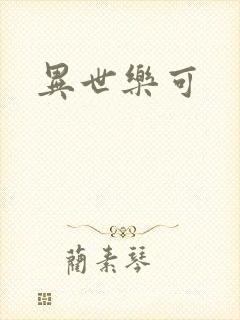 異世樂可
蔺素琴